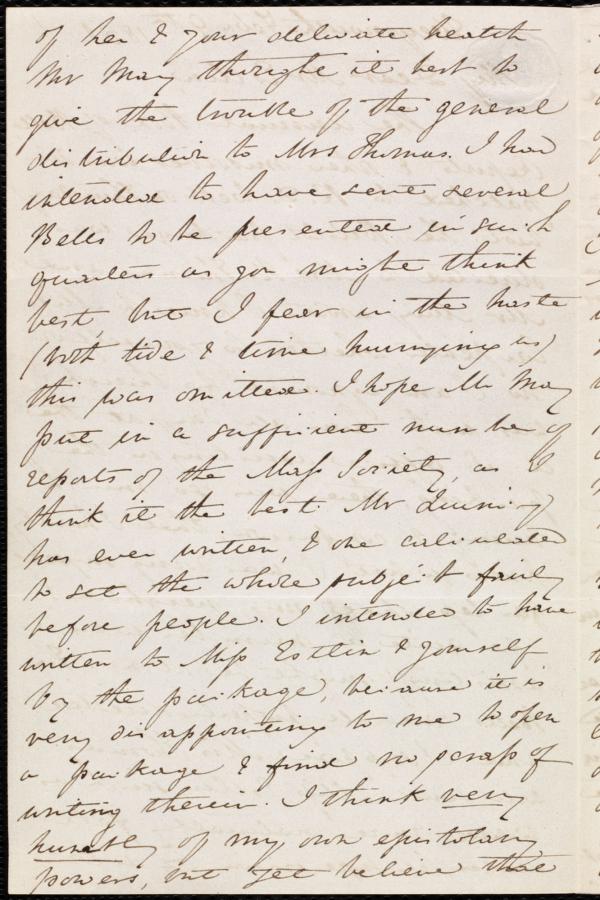 of her & your delicate health
Mr May thought it best to
give the trouble of the general
distribution to Mrs Thomas. I had
intended to have sent several
Bells to be presented in such
quarters as you might think
best, but I fear in the haste
(both tide & time hurrying us)
this was omitted. I hope Mr May
put in a sufficient number of
reports of the Mass Society, as I
think it the best Mr Quincy
has ever written, & one calculated
to set the whole subject fairly
before people. I intended to have
written to Miss Estlin & yourself
by the package, because it is
very disappointing to me to open
a package & find no scrap of
writing therein. I think very
humbly of my own epistolary
powers, but yet believe that